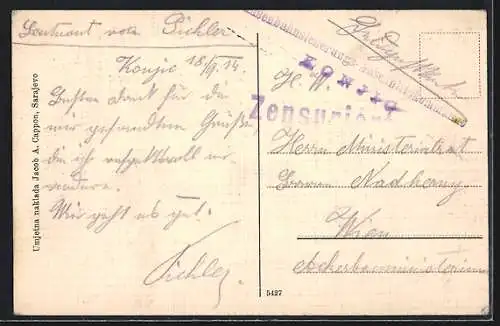 Leutnant von Pichler
Konjic 18/9. 14.
Besten dank für die
mir gesandten Grüße,
die ich respektvoll er-
widere.
Mir geht es gut.
Pichler
Umjetna naklada Jacob A. Cappon, Sarajevo
5427
KONJICA
Zensuriert
H. W.
Herrn Ministerialrat
Nadherny
Wien
Ackerbauministerium